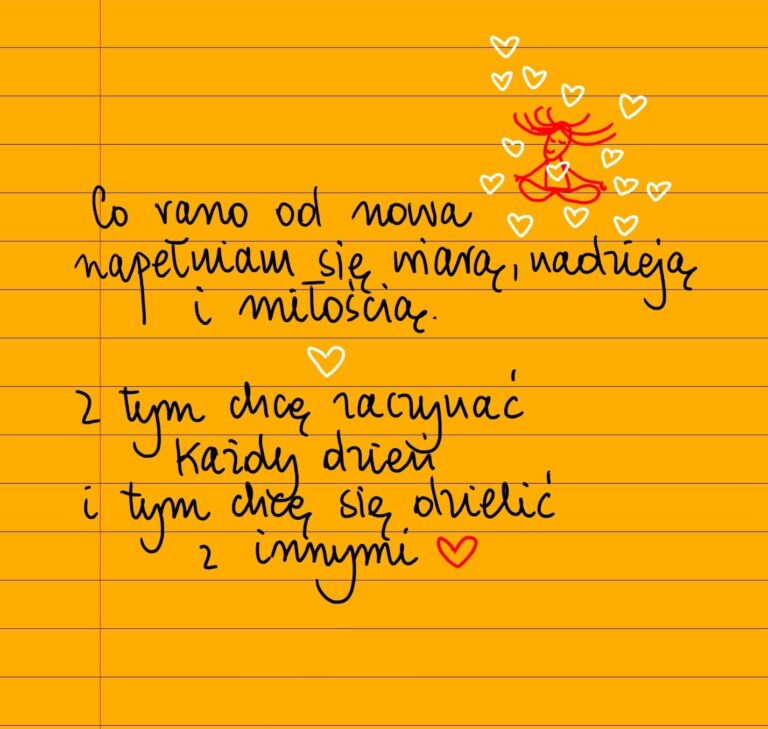 Co rano od nowa
napełniam się wiarą, nadzieją
i miłością.
z tym chcę zaczynać
każdy dzień
i tym chcę się dzielić
z innymi